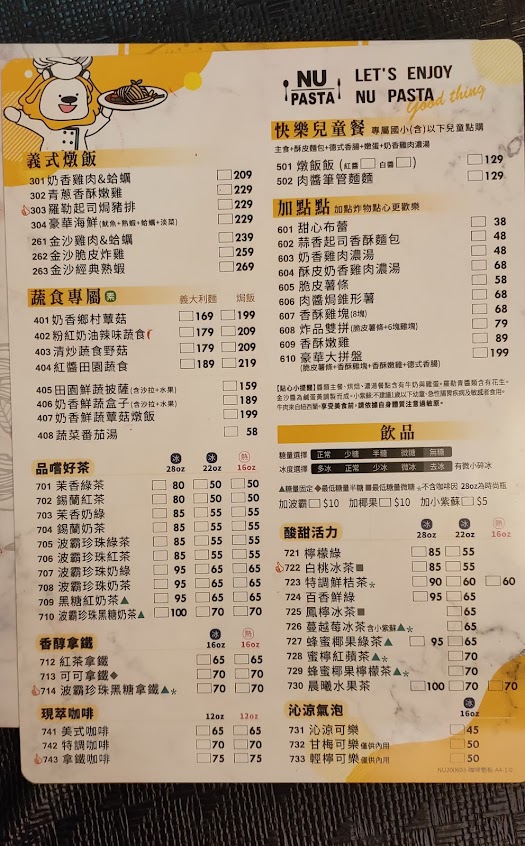 NU
PASTA
LET'S ENJOY
NU PASTA
Good thing
義式燉飯
301 奶香雞肉&蛤蠣 209
302 青蔥香酥嫩雞 229
303 羅勒起司焗豬排 229
304 豪華海鮮(魷魚+熟蝦+蛤蠣+淡菜) 229
261 金沙雞肉&蛤蠣 239
262 金沙脆皮炸雞 259
263 金沙經典熟蝦 269
蔬食專屬 素 義大利麵 焗飯
401 奶香鄉村蕈菇 169 199
402 粉紅奶油辣味蔬食 179 209
403 清炒蔬食野菇 179 209
404 紅醬田園蔬食 189 219
405 田園鮮蔬披薩(含沙拉+水果) 159
406 奶香鮮蔬盒子(含沙拉+水果) 189
407 奶香鮮蔬蕈菇燉飯 199
408 蔬菜番茄湯 58
品嚐好茶 冰 28oz 冰 22oz 熱 16oz
701 茉香綠茶 80 50 50
702 錫蘭紅茶 80 50 50
703 茉香奶綠 85 55 55
704 錫蘭奶茶 85 55 55
705 波霸珍珠綠茶 85 55 55
706 波霸珍珠紅茶 85 55 55
707 波霸珍珠奶綠 95 65 65
708 波霸珍珠奶茶 95 65 65
709 黑糖紅奶茶▲ 95 65 65
710 波霸珍珠黑糖奶茶▲ 100 70 70
香醇拿鐵 冰 16oz 熱 16oz
712 紅茶拿鐵 65 65
713 可可拿鐵◆ 70 70
714 波霸珍珠黑糖拿鐵▲* 70 70
現萃咖啡 12oz 12oz
741 美式咖啡 65 65
742 特調咖啡 70 70
743 拿鐵咖啡 75 75
快樂兒童餐 專屬國小(含)以下兒童點購
主食+酥皮麵包+德式香腸+嫩蛋+奶香雞肉濃湯
501 燉飯飯 (紅醬 白醬 ) 129
502 肉醬筆管麵麵 129
加點點 加點炸物點心更歡樂
601 甜心布蕾 38
602 蒜香起司香酥麵包 48
603 奶香雞肉濃湯 48
604 酥皮奶香雞肉濃湯 68
605 脆皮薯條 58
606 肉醬焗錐形薯 68
607 香酥雞塊(8塊) 68
608 炸品雙拼(脆皮薯條+6塊雞塊) 79
609 香酥嫩雞 89
610 豪華大拼盤 199
(脆皮薯條+香酥雞塊+香酥嫩雞+德式香腸)
飲品
糖量選擇 正常 少糖 半糖 微糖 無糖
冰度選擇 多冰 正常 少冰 微冰 去冰 有微小碎冰
▲糖量固定 ◆最低糖量半糖 ■最低糖量微糖 *不含咖啡因 28oz為時尚瓶
加波霸 $10 加椰果 $10 加小紫蘇 $5
酸甜活力 冰 28oz 冰 22oz 熱 16oz
721 檸檬綠 85 55
722 白桃冰茶■ 85 55
723 特調鮮桔茶* 90 60 60
724 百香鮮綠 95 65
725 鳳檸冰茶■ 65
726 蔓越莓冰茶含小紫蘇▲* 65
727 蜂蜜椰果綠茶▲ 95 65
728 蜜檸紅蘋茶▲* 70
729 蜂蜜椰果檸檬茶▲* 70
730 晨曦水果茶 100 70 70
沁涼氣泡 冰 16oz
731 沁涼可樂 45
732 甘梅可樂 僅供內用 50
733 輕檸可樂 僅供內用 50